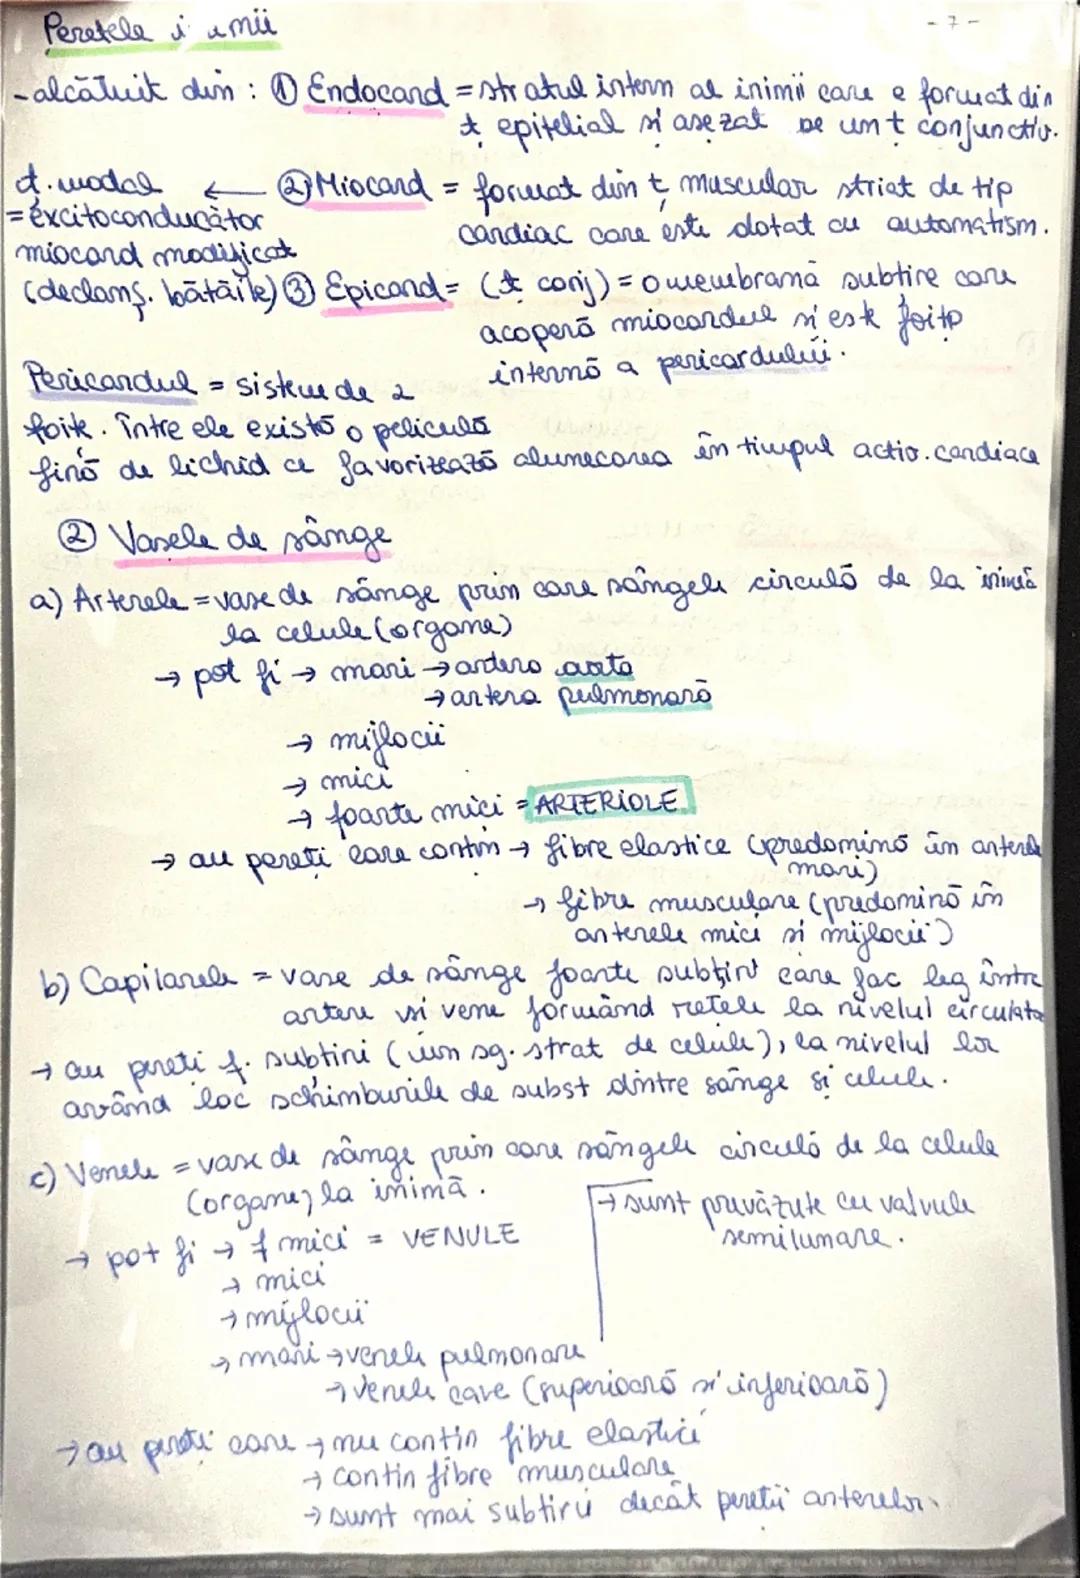 Peretele i amii
- 7 -
- alcătuit din : ① Endocard = stratul intern al inimii care e format din
ț epitelial și așezat pe un ț conjunctiv.
ț. nodal ← ② Miocard = format din ț muscular striat de tip
= excitoconducător cardiac care este dotat cu automatism.
miocard modificat
(declanș. bătăile) ③ Epicard = (ț conj) = o membrană subțire care
acoperă miocardul și este foița
internă a pericardului.
Pericardul = sistem de 2
foițe. între ele există o peliculă
fină de lichid ce favorizează alunecarea în timpul activ. cardiace
② Vasele de sânge
a) Arterele = vase de sânge prin care sângele circulă de la inimă
la celule (organe)
→ pot fi → mari → artera aorta
→ artera pulmonară
→ mijlocii
→ mici
→ foarte mici = ARTERIOLE
→ au pereți care conțin → fibre elastice (predomină în arterele
mari)
→ fibre musculare (predomină în
arterele mici și mijlocii)
b) Capilarele = vase de sânge foarte subțiri care fac leg între
artere și vene formând rețele la nivelul
→ au pereți f. subțiri (un sg. strat de celule), la nivelul lor
având loc schimburile de subst dintre sânge și celule.
c) Venele = vase de sânge prin care sângele circulă de la celule
(organe) la inimă.
→ sunt prevăzute cu valvule
semilunare.
→ pot fi → f mici = VENULE
→ mici
→ mijlocii
→ mari → venele pulmonare
→ venele cave (superioară și inferioară)
→ au pereți care → nu conțin fibre elastice
→ conțin fibre musculare
→ sunt mai subțiri decât pereții arterelor.